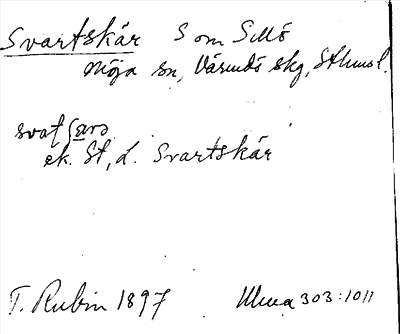 Svartskär S om Sillö
Möja sn, Värmdö skg, Sthms l.
svat
ek. St, L. Svartskär
T. Rubin 1897 Muea 303:1011